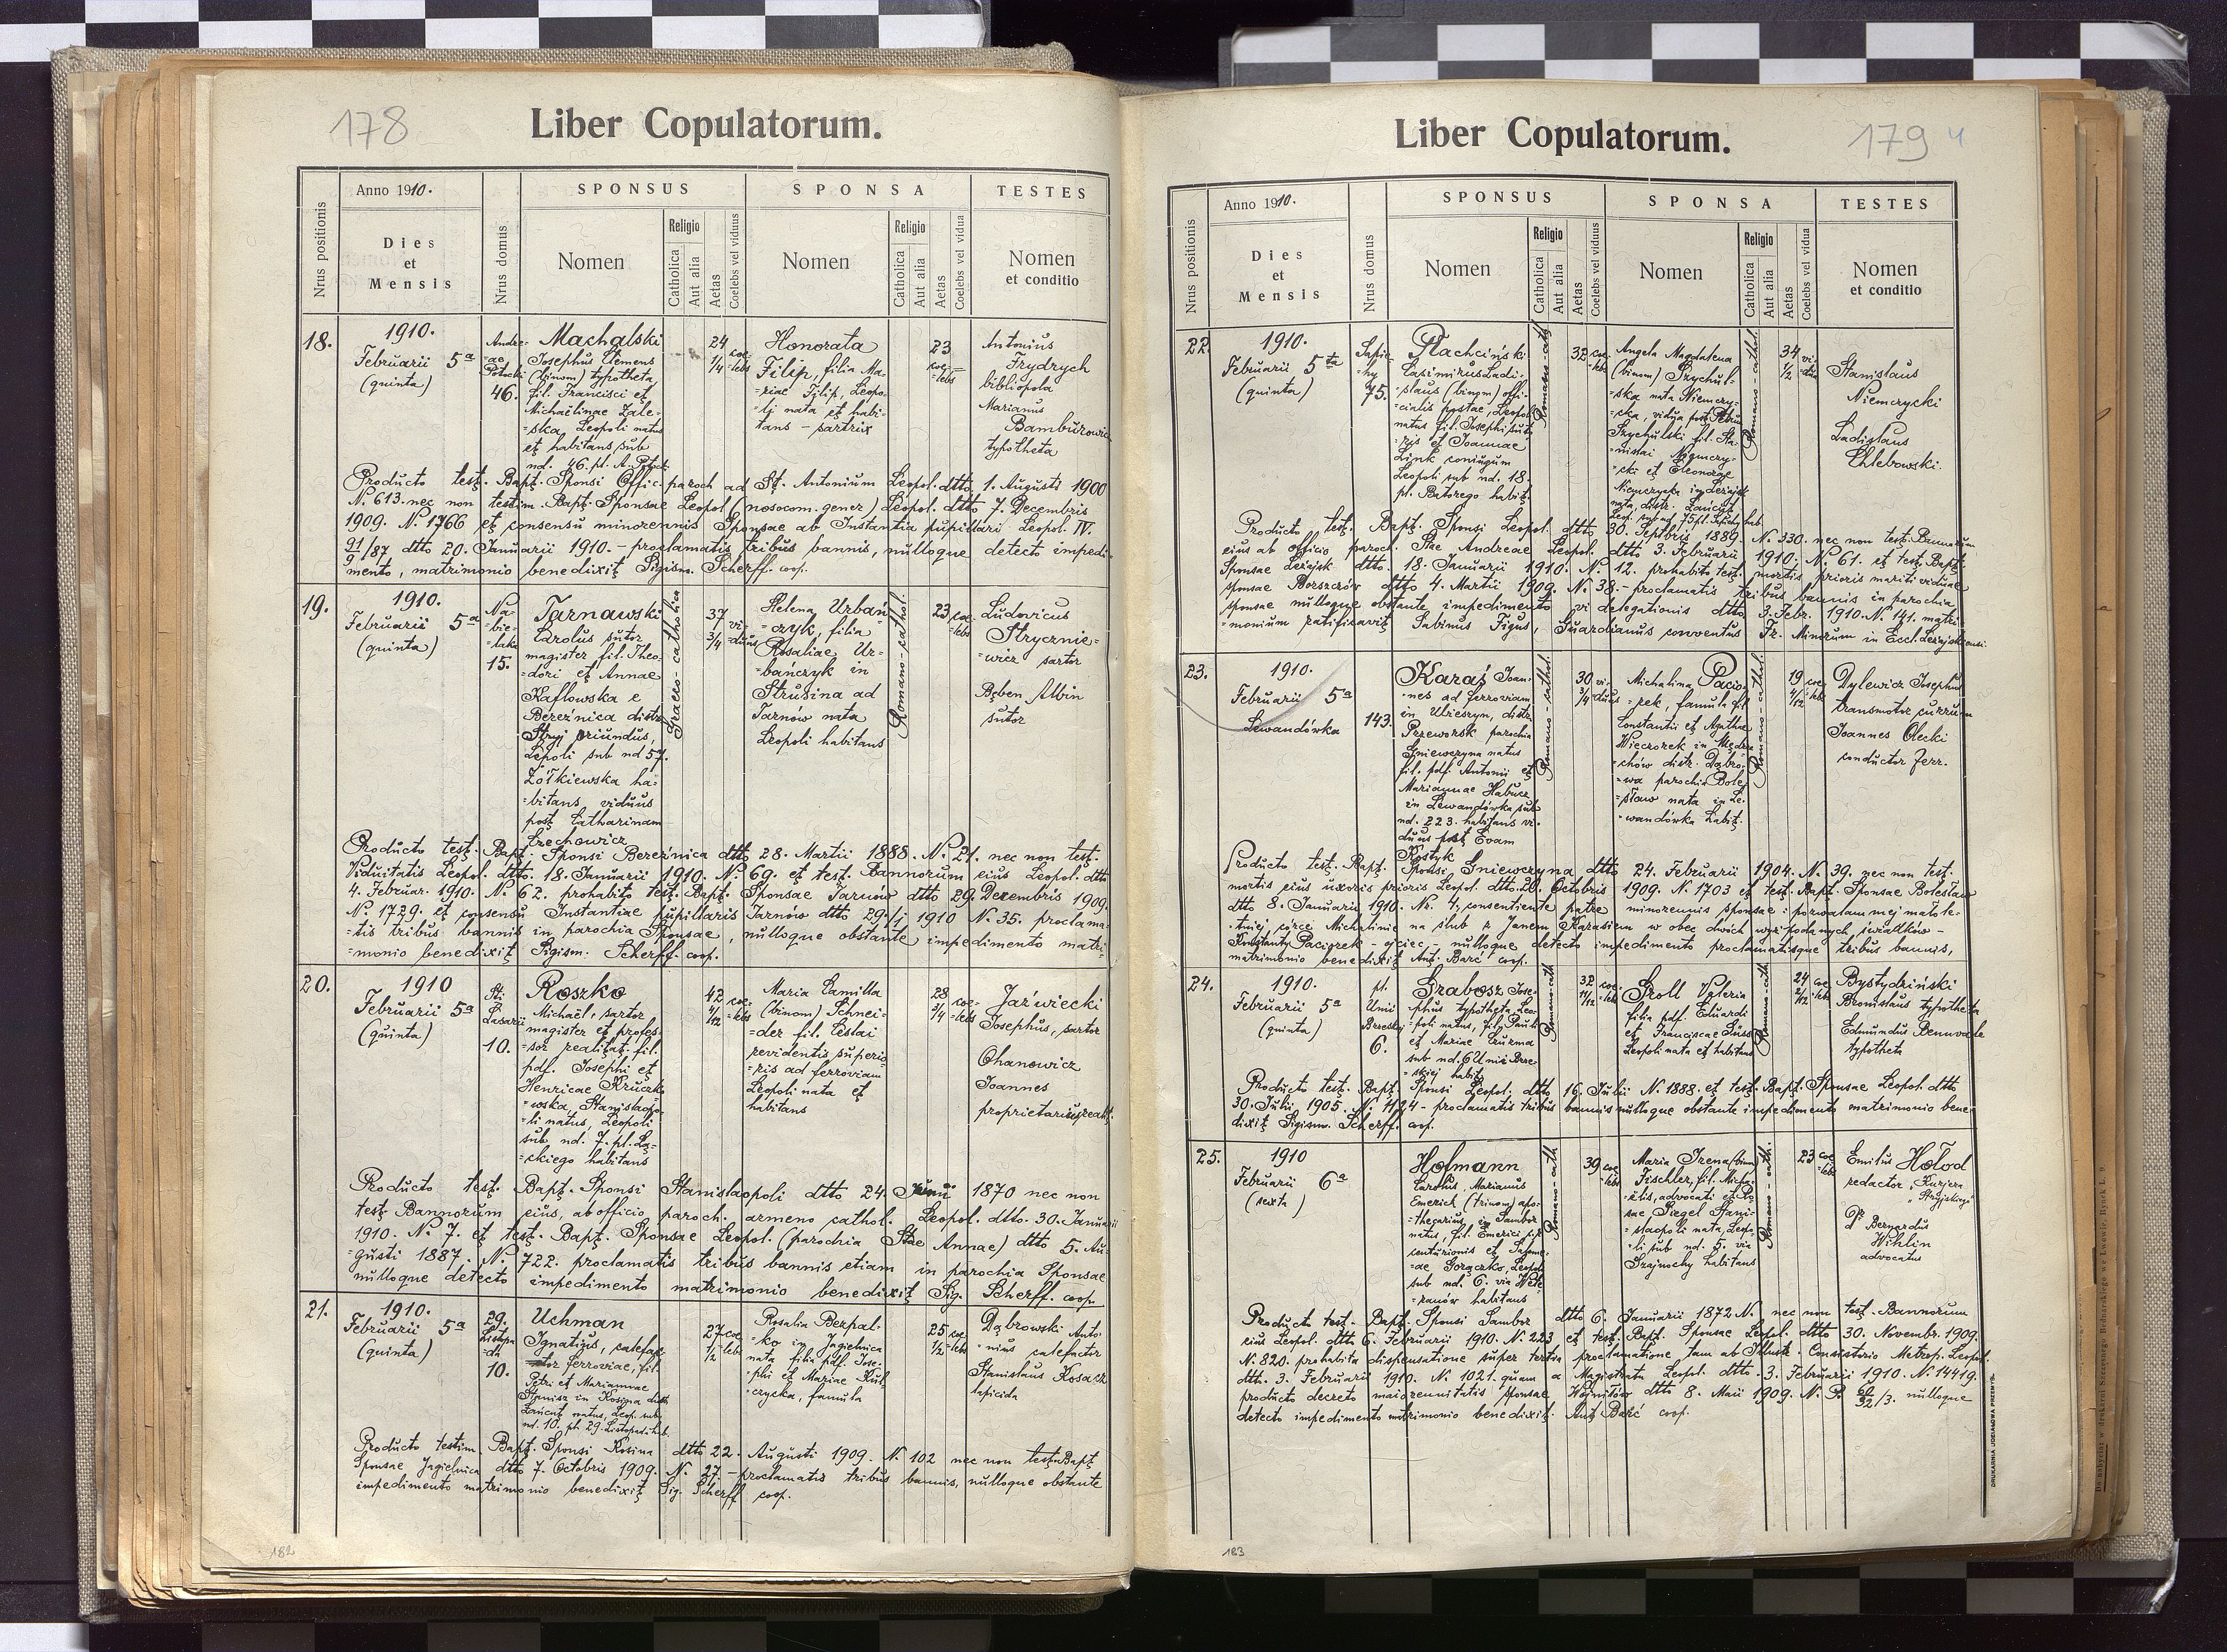 178
Liber Copulatorum.
Nrus positionis
Anno 1910.
Dies
et
Mensis
Nrus domus
SPONSUS
Nomen
Religio
Catholica
Aut alia
Aetas
Coelebs vel viduus
SPONSA
Nomen
Religio
Catholica
Aut alia
Aetas
Coelebs vel vidua
TESTES
Nomen
et conditio
18.
1910.
Februarii 5ª
(quinta)
Andre-
-ae
Potocki
46.
Machalski
Josephus Clemens
(binom) typotheta
fil. Francisci et
Michaëlinae Zale-
-ska, Leopoli natus
et habitans sub
nd. 46. pl. A. Potock.
24
1/4
coe-
-lebs
Honorata
Filip, filia Ma-
-riae Filip, Leopo-
-li nata et habi-
tans - sartrix
23
coe-
-lebs
Antonius
Frydrych
bibliopola
Marianus
Bamburowicz
typotheta
Producto test. Bapt. Sponsi Offic. paroch ad St. Antonium Leopol. dtto 1. Augusti 1900
№ 613. nec non testim. Bapt. Sponsae Leopol (nosocom. gener.) Leopol. dtto 7. Decembris
1909. № 1766 et consensu minorennis Sponsae ab Instantia pupillari Leopol. IV.
21/9/87 dtto 20. Januarii 1910. - proclamatis tribus bannis, nulloque detecto impedi-
mento, matrimonio benedixit Sigism. Scherff. coop.
19.
1910.
Februarii 5ª
(quinta)
Na-
-bie-
-laka
15.
Tarnawski
Carolus sutor
magister fil. Theo-
-dori et Annae
Kaflowska e
Bereźnica distr.
Stryj oriundus,
Leopoli sub nd 57.
Żółkiewska ha-
-bitans, viduus
post Catharinam
Lzechowicz
Graeco-catholica
37
3/4
vi-
-duus
Helena Urbań-
-czyk, filia
Rosaliae Ur-
-bańczyk in
Strusina ad
Tarnów nata
Leopoli habitans
Romano-cathol.
23 coe-
-lebs
Ludovicus
Strycznie-
-wicz sartor
Bęben Albin
sutor
Producto test. Bapt. Sponsi Bereźnica dtto 28. Martii 1888. № 21. nec non test.
Viduitatis Leopol. dtto. 18. Januarii 1910. № 69. et test. Bannorum eius Leopol. dtto
4. Februar. 1910. № 62. prohabito test. Bapt. Sponsae Tarnów dtto 29. Decembris 1909.
№ 1729. et consensu Instantiae pupillaris Tarnów dtto 29/1 1910 № 35. proclama-
-tis tribus bannis in parochia Sponsae, nulloque obstante impedimento matri-
-monio benedixit Sigism. Scherff. coop.
20.
1910
Februarii 5ª
(quinta)
Sti
Lazarii
10.
Roszko
Michaël, sartor
magister et profes-
-sor realitat. fil.
pdf. Josephi et
Henricae Kruczk-
-wska, Stanislaopo-
-li natus, Leopoli
sub nd. 7. pl. La-
-ckiego habitans
42
4/12
coe-
-lebs
Maria Camilla
(binom) Schnei-
-der fil. Ceslai
revidentis superio-
-ris ad ferroviam
Leopoli nata et
habitans
28
3/4
coe-
-lebs
Jaźwiecki
Josephus, sartor
Ohanowicz
Joannes
proprietarius realit.
Producto test. Bapt. Sponsi Stanislaopoli dtto 24. Junii 1870 nec non
test. Bannorum eius, ab officio paroch. armeno cathol. Leopol. dtto. 30. Januarii
1910. № 7. et test. Bapt. Sponsae Leopol. (parochia Stae Annae) dtto 5. Au-
-gusti 1887. № 722. proclamatis tribus bannis etiam in parochia Sponsae
nulloque detecto impedimento matrimonio benedixit Sig. Scherff. coop.
21.
1910.
Februarii 5ª
(quinta)
29.
Listopa-
-da
10.
Uchman
Ignatius, calefac-
-tor ferroviae, fil.
Petri et Mariannae
Stanisz in Kosina distr
Łańcut natus, Leop. sub
nd. 10. pl. 29. Listopad. hab.
27
1/2
coe-
-lebs
Rosalia Bezpal-
-ko in Jagielnica
nata filia pdf. Jose-
-phi et Mariae Kul-
-czycka, famula
25
1/2
coe-
-lebs
Dąbrowski Anto-
-nius calefactor
Stanislaus Kosacz
lapicida
Producto testim. Bapt. Sponsi Kosina dtto 22. Augusti 1909. № 102 nec non test. Bapt
Sponsae Jagielnica dtto 7. Octobris 1909. № 27 - proclamatis tribus bannis, nulloque obstante
impedimento matrimonio benedixit Sig. Scherff coop.
182
179
Liber Copulatorum.
Nrus positionis
Anno 1910.
Dies
et
Mensis
Nrus domus
SPONSUS
Nomen
Religio
Catholica
Aut alia
Aetas
Coelebs vel viduus
SPONSA
Nomen
Religio
Catholica
Aut alia
Aetas
Coelebs vel vidua
TESTES
Nomen
et conditio
22.
1910.
Februarii 5ta
(quinta)
Sapie-
-hy
75.
Płachciński
Casimirus Ladi-
-slaus (binom) offi-
-cialis postae, Leopol
natus fil. Josephi suto-
-ris et Joannae
Link coniugum
Leopoli sub nd. 18
pl. Batorego habit.
Romano-cath
32 coe-
-lebs
Angela Magdalena
(binom) Szychul-
-ska nata Niemczy-
-cka, vidua post Petrum
Szychulski fil. Sta-
-nislai Niemczy-
-cki et Eleonorae
Niemczycka in Leżajsk
nata, distr. Łańcut
Romano-cathol.
34
1/2
vi-
-dua
Stanislaus
Niemczycki
Ladislaus
Chlebowski.
Producto test. Bapt. Sponsi Leopol. dtto 30. Septbris 1889. № 330. nec non test. Bannorum
eius ab officio paroch. Stae Andreae Leopol. dtto 3. Februarii 1910. № 61. et test. Bapt.
Sponsae Leżajsk dtto. 18. Januarii 1910. № 12. prohabito test. mortis prioris mariti viduae
sponsae Borszczów dtto 4. Martii 1909. № 38. - proclamatis tribus bannis in parochia
sponsae nulloque obstante impedimento vi delegationis dtto 3. Febr. 1910. № 141. matri-
-monium ratificavit Sabinus Figus, Guardianus conventus Fr. Minorum in Eccl. Leżajscensi.
23.
1910.
Februarii 5ª
Lewandówka
143.
Karaś Joan-
-nes ad ferroviam
in Ubieszyn, distr.
Przeworsk parochia
Gniewczyna natus
fil. pdf. Antonii et
Mariannae Habucz
in Lewandówka sub
nd. 223. habitans vi-
duus post Evam
Kostyk
Romano-cathol.
30
3/4
vi-
-duus
Michalina Pacio-
-rek, famula fil.
Constantii et Agathae
Wieczorek in Mędrze-
-chów distr. Dąbro-
-wa parochia Bole-
-sław nata in Le-
-wandówka habit.
Romano-cathol.
19
4/12
coe-
-lebs
Dylewicz Josephus
transmotor curruum
Joannes Olecki
conductor ferr.
Producto test. Bapt. Sponsi Gniewczyna dtto 24. Februarii 1904. № 39. nec non test.
mortis eius uxoris prioris Leopol. dtto. 20. Octobris 1909. № 1703 et test. Bapt. Sponsae Bolesław
dtt. 8. Januarii 1910. № 4, consentiente patre minorennis sponsae: pozwalam mej małole-
-tniej córce Michalinie na ślub z Janem Karasiem w obec dwóch wyżpodanych świadków -
Konstanty Paciorek - ojciec, - nulloque detecto impedimento proclamatisque tribus bannis,
matrimonio benedixit Ant. Barć coop.
24.
1910.
Februarii 5ª
(quinta)
pl.
Unii
Brzeskiej
6.
Grabosz Jose-
-phus typotheta Leo-
-poli natus, fil. Pauli
et Mariae Czurma
sub nd. 6 Unii Brze-
-skiej habit.
Romano-cath
32
11/12
coe-
-lebs
Groll Valeria
filia pdf. Eduardi
et Franciscae Süss
Leopoli nata et habitans
Romano-cath.
24
2/12
coe-
-lebs
Bystydzieński
Bronislaus typotheta
Edmundus Bennvale
typotheta
Producto test. Bapt. Sponsi Leopol. dtto 16. Julii № 1888. et test. Bapt. Sponsae Leopol. dtto
30. Julii 1905. № 1124 - proclamatis tribus bannis nulloque obstante impedimento matrimonio bene-
dixit Sigism. Scherff. coop.
25.
1910
Februarii 6ª
(sexta)
Hofmann
Carolus, Marianus
Emerich (trinom) apo-
-thecarius, in Sambor
natus, fil. Emerici
centurionis et Salome-
-ae Gorączko, Leopol
sub nd. 6. via Wete-
-ranów habitans
Romano-cath
39 coe-
-lebs
Maria Irena (binom)
Fischler, fil. Micha-
-ëlis, advocati et Ro-
sae Siegel Stani-
-slaopoli nata, Leopo-
-li sub nd. 5. via
Szajnochy habitans
Romano-cath.
23 coe-
-lebs
Emilu Hołod
redactor "Kurjera
Stryjskiego"
Dr Bernardus
Wihlin
advocatus
Producto test. Bapt. Sponsi Sambor dtto 6. Januarii 1872 № nec non test. Bannorum
eius Leopol. dtt. 6. Februarii 1910. № 223 et test. Bapt. Sponsae Leopol. dtto 30. Novembr. 1909.
№ 820. prohabita dispensatione super tertia proclamatione tam ab Illustr. Consistorio Metrop. Leopol.
dtto. 3. Februarii 1910. № 1021. quam a Magistratu Leopol. dtto. 3. Februarii 1910. № 14419.
producto decreto maiorennitatis sponsae Wojniłów dtto 8. Maii 1909. nulloque
detecto impedimento matrimonio benedixit. Ant. Barć coop.
183
DRUKARNIA UDZIAŁOWA PRZEMYŚL